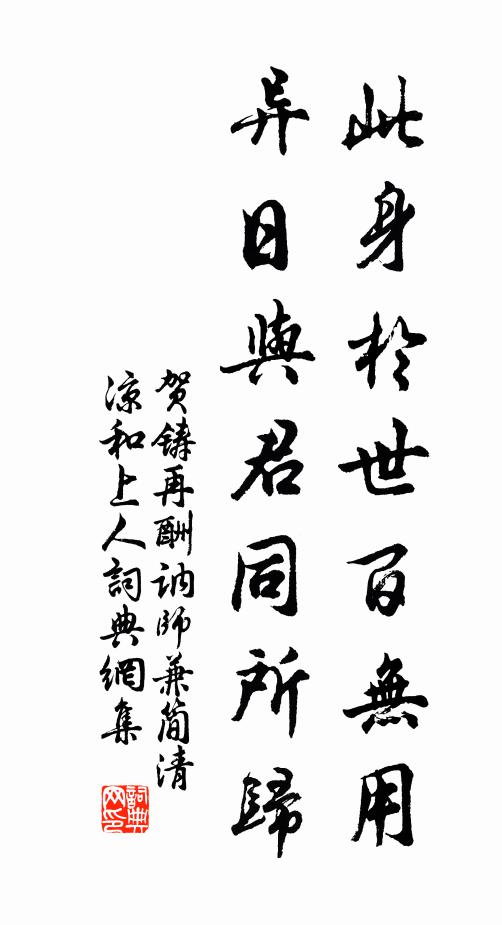 此身於世百無用
异日與君同所歸
贺鑄再酬訥師兼简清
凉和上人詞典網集
詞典网印